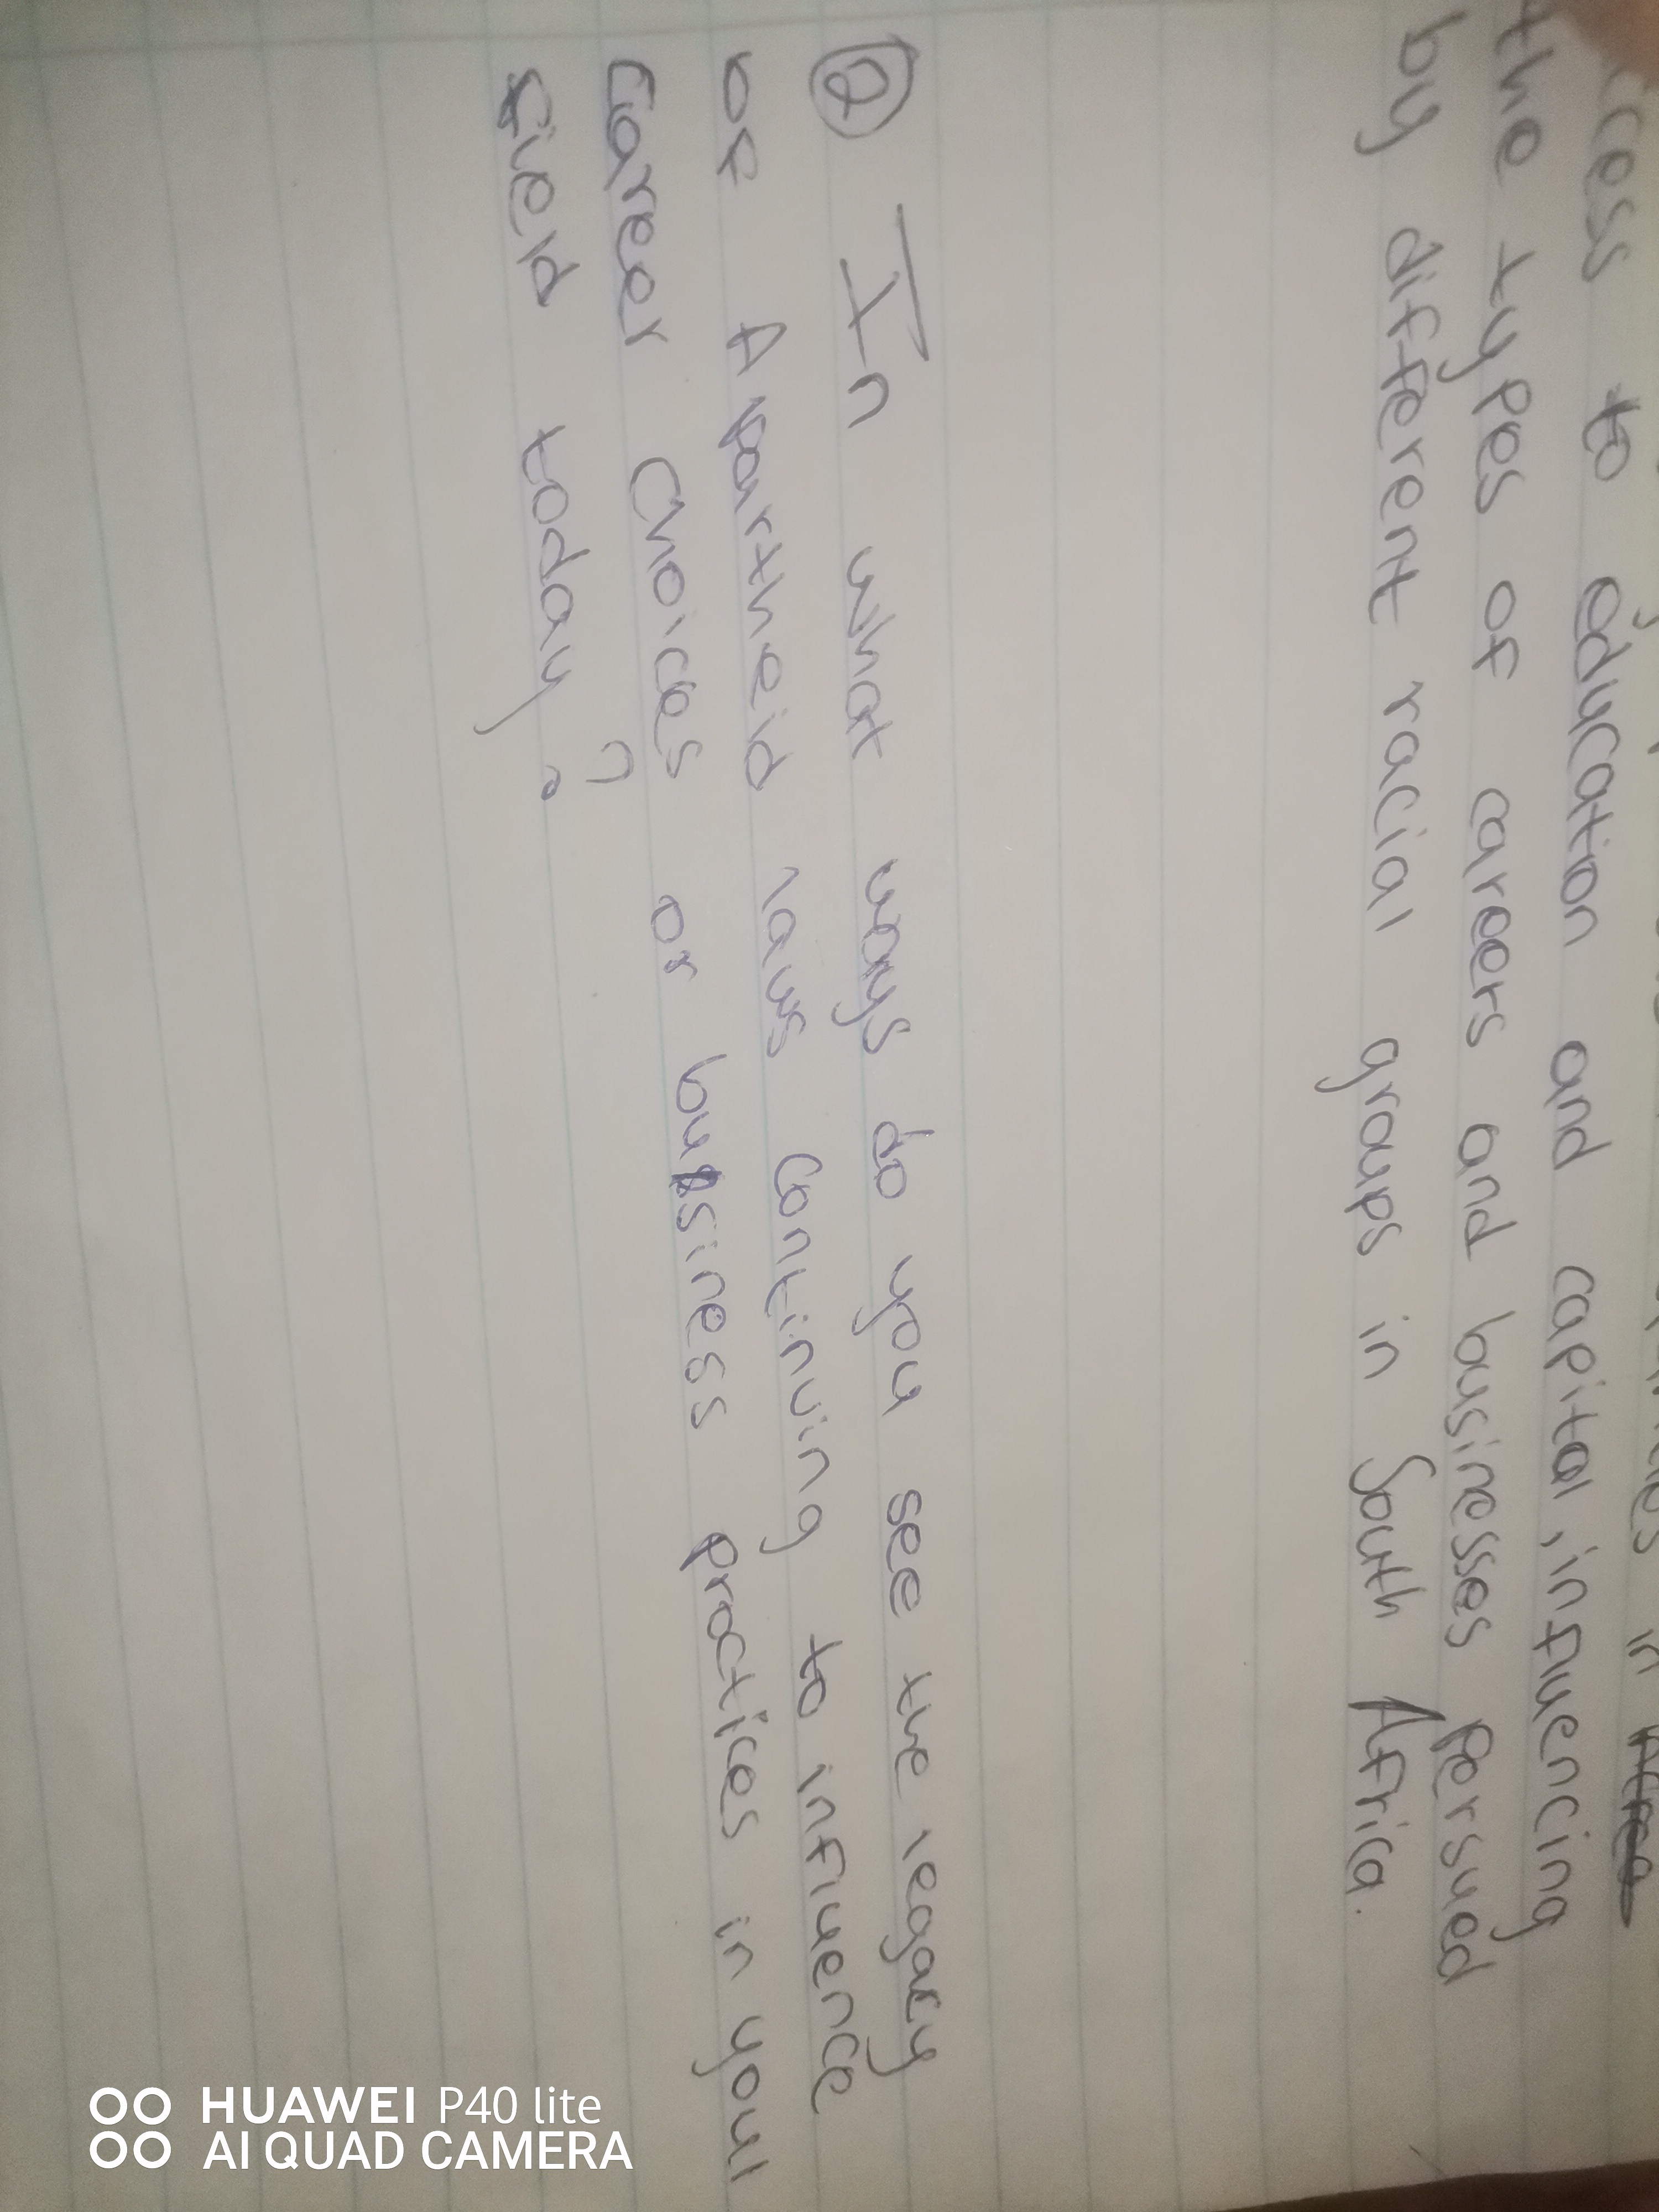 to education and capital, influencing
the types of careers and businesses persued
by different racial groups in South Africa.
② In what ways do you see the legacy
of Apartheid laws continuing to influence
career choices or business practices in your
field today?
HUAWEI P40 lite
AI QUAD CAMERA